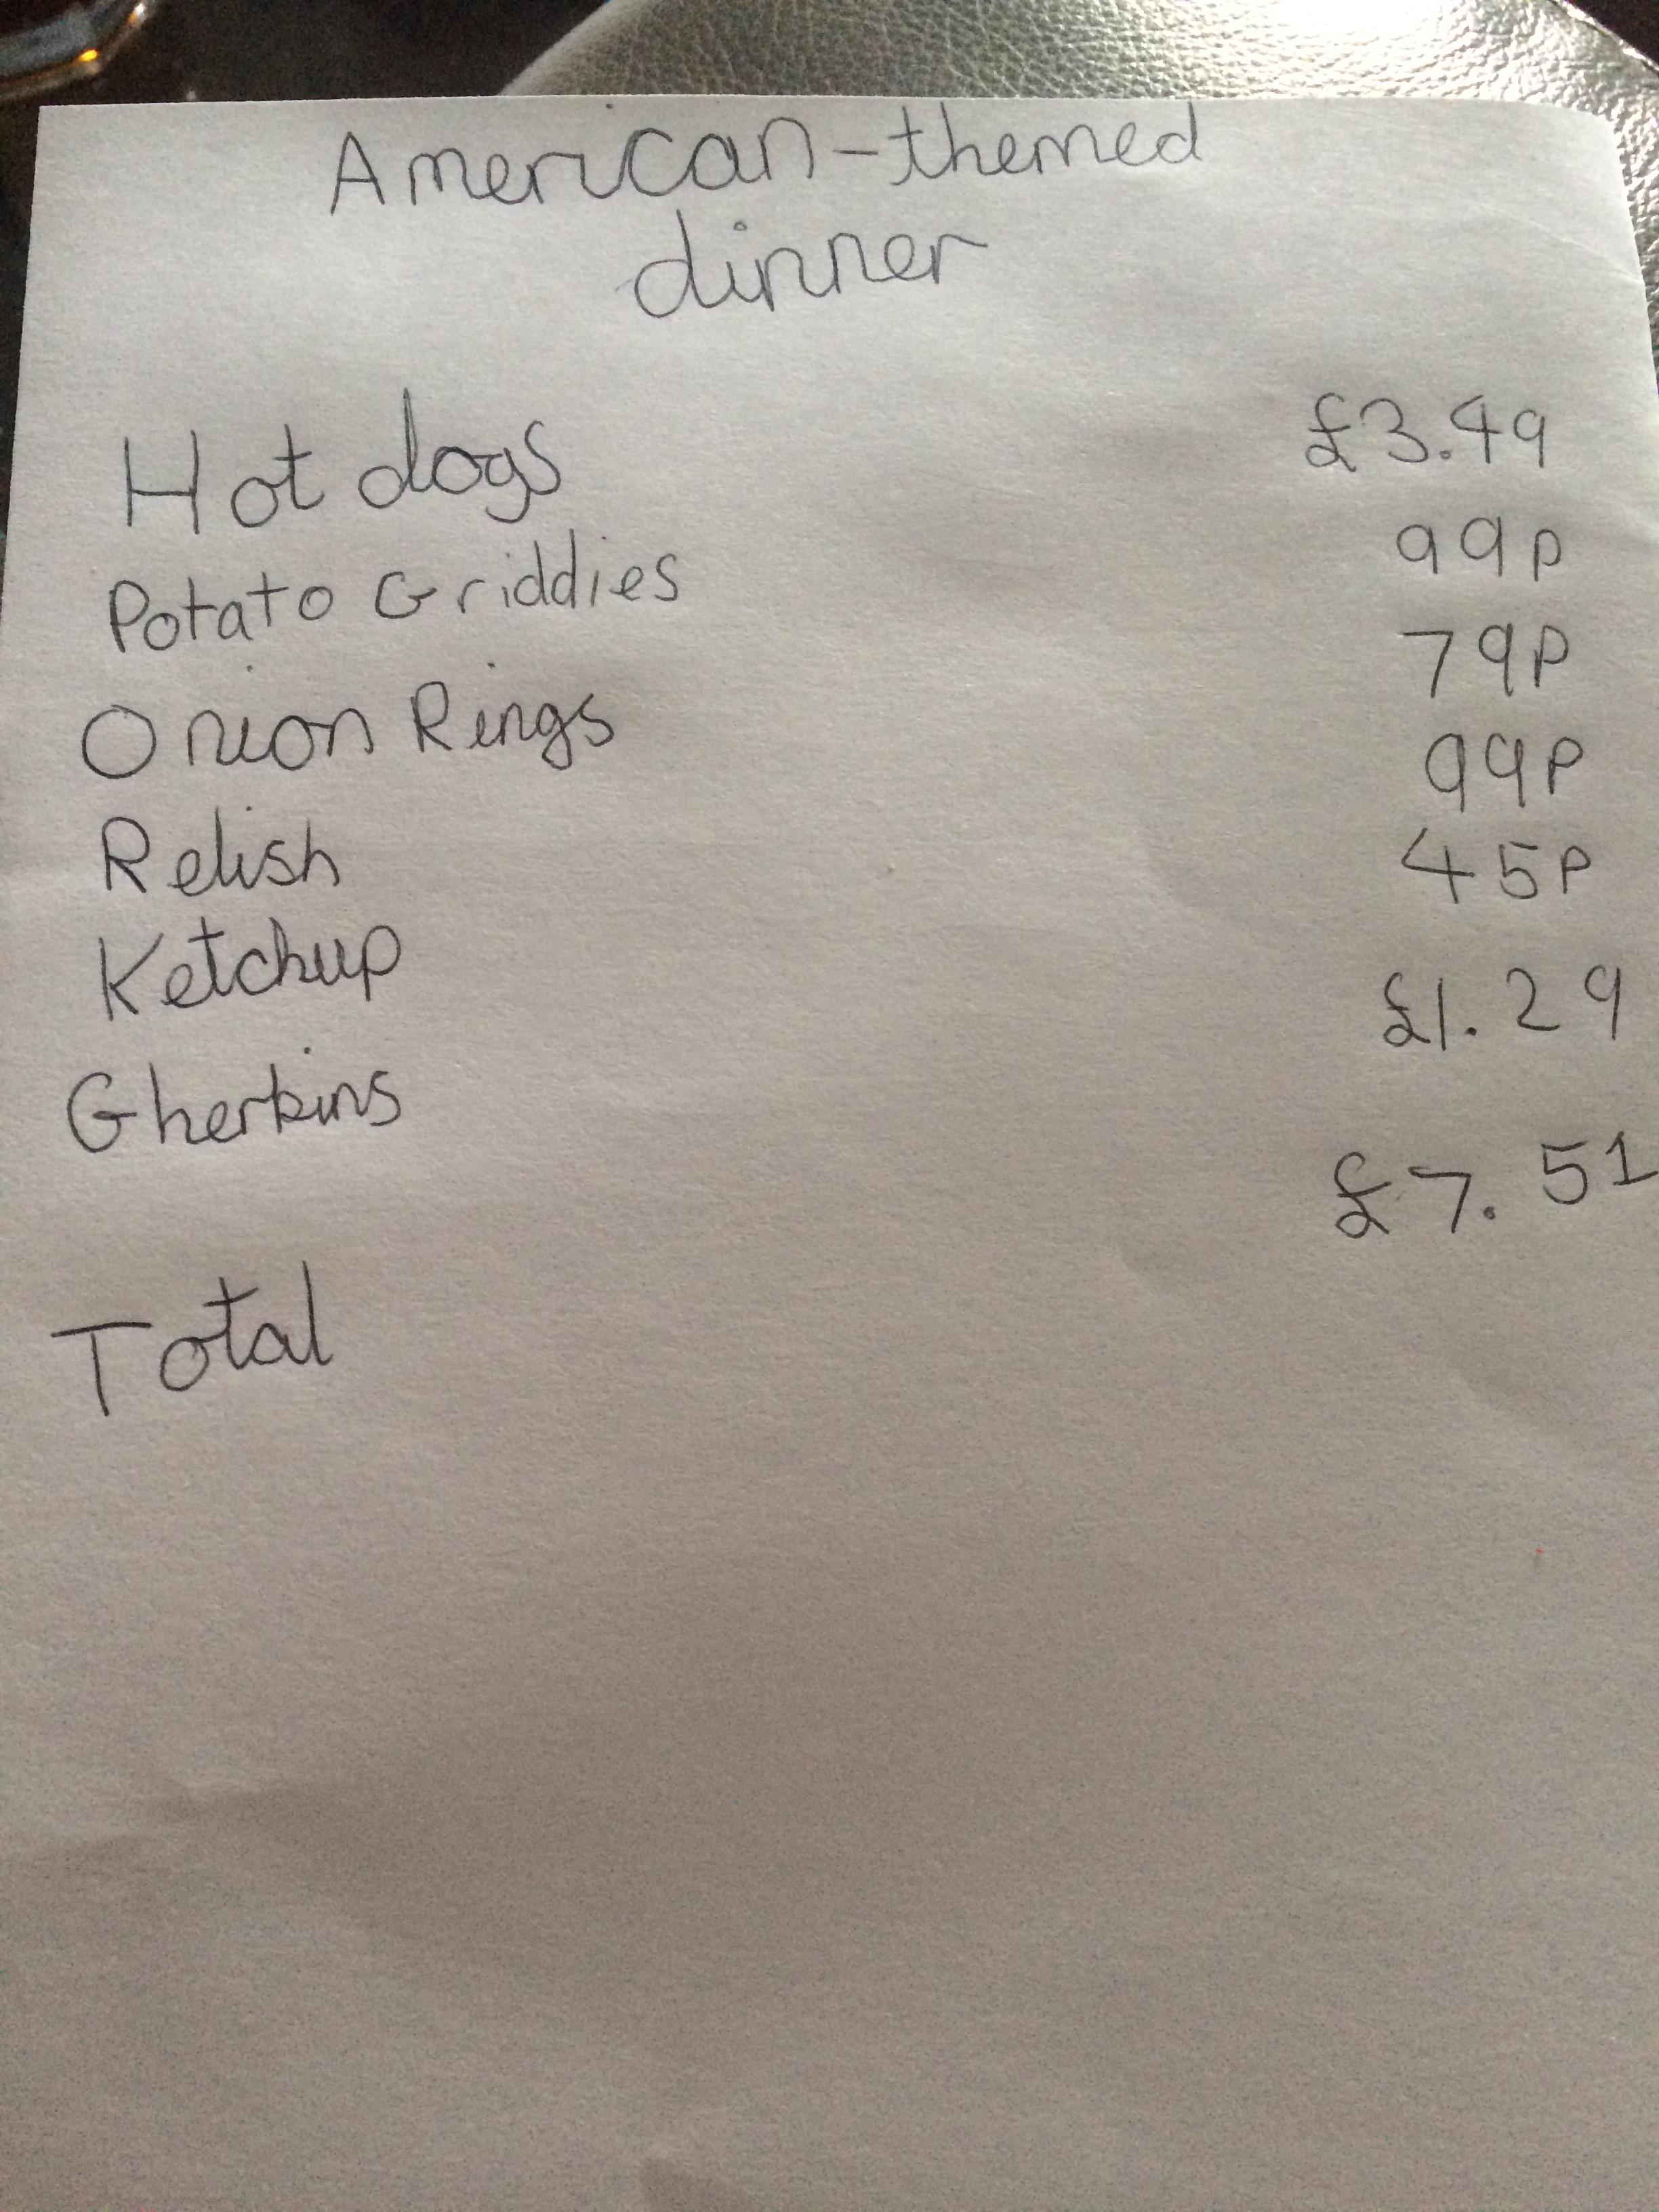 American-themed
dinner
Hot dogs £3.49
Potato Griddies 99p
Onion Rings 79p
Relish 99p
Ketchup 45p
Gherkins £1.29
Total £7.51